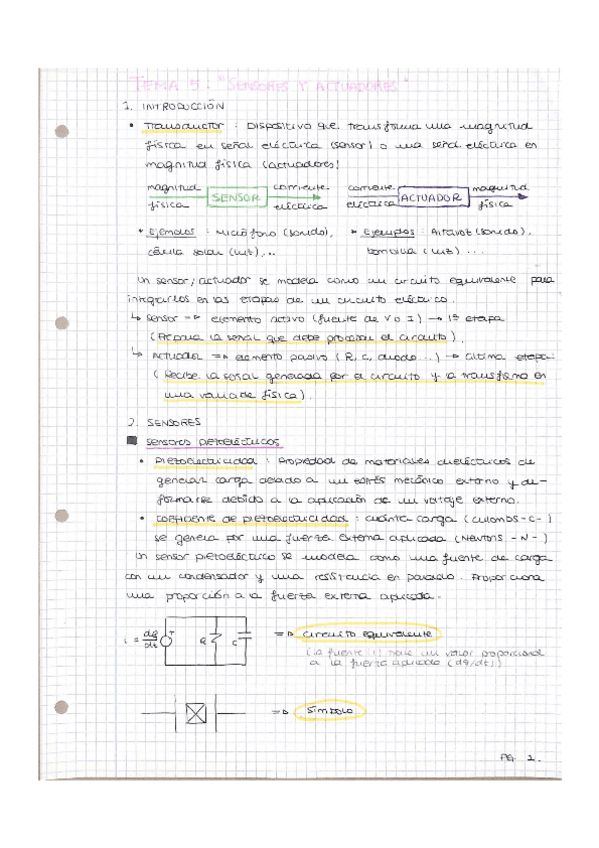 TEMA 5: "SENSORES Y ACTUADORES"
1. INTRODUCCIÓN
• Transductor : Dispositivo que transforma una magnitud
física en señal eléctrica (sensor) o una señal eléctrica en
magnitud física (actuadores)
magnitud física → SENSOR → corriente eléctrica
corriente eléctrica → ACTUADOR → magnitud física
• Ejemplos : Micrófono (sonido),
célula solar (luz),...
• Ejemplos : Altavoz (sonido),
bombilla (luz) ...
Un sensor/actuador se modela como un circuito equivalente para
integrarlos en las etapas de un circuito eléctrico.
↳ Sensor => elemento activo (fuente de V o I) → 1ª etapa
(Aporta la señal que debe procesar el circuito).
↳ Actuador => elemento pasivo (R, C, diodo...) → última etapa
(Recibe la señal generada por el circuito y la transforma en
una variable física).
2. SENSORES
■ Sensores piezoeléctricos
• Piezoelectricidad : Propiedad de materiales dieléctricos de
generar carga debido a un estrés mecánico externo y de-
formarse debido a la aplicación de un voltaje externo.
• Coeficiente de piezoelectricidad : cuánta carga (culombs -C-)
se genera por una fuerza externa aplicada (Newtons -N-)
Un sensor piezoeléctrico se modela como una fuente de carga
con un condensador y una resistencia en paralelo. Proporciona
una proporción a la fuerza externa aplicada.
i = dq/dt
+
R
C
=> circuito equivalente
(la fuente (i) tiene un valor proporcional
a la fuerza aplicada (dq/dt))
=> símbolo